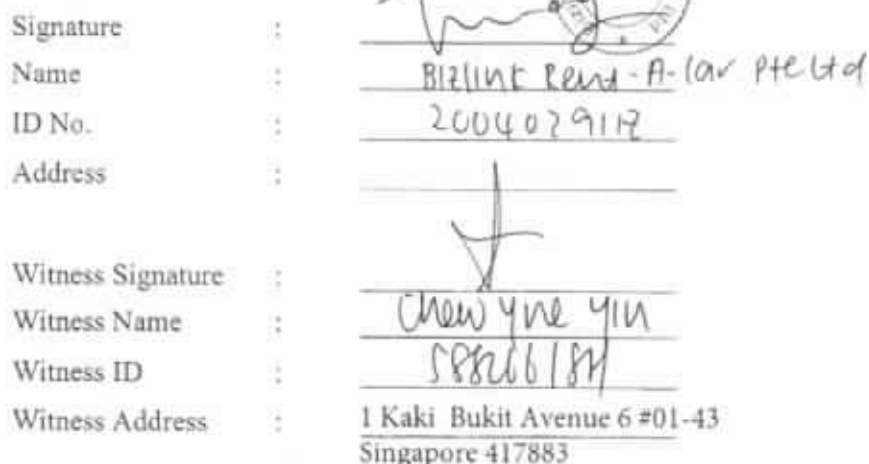 Signature :
Name : Bizlink Rent-A-Car Pte Ltd
ID No. : 200402911Z
Address :
Witness Signature :
Witness Name : Chew Yne Yin
Witness ID :
Witness Address : 1 Kaki Bukit Avenue 6 #01-43
Singapore 417883